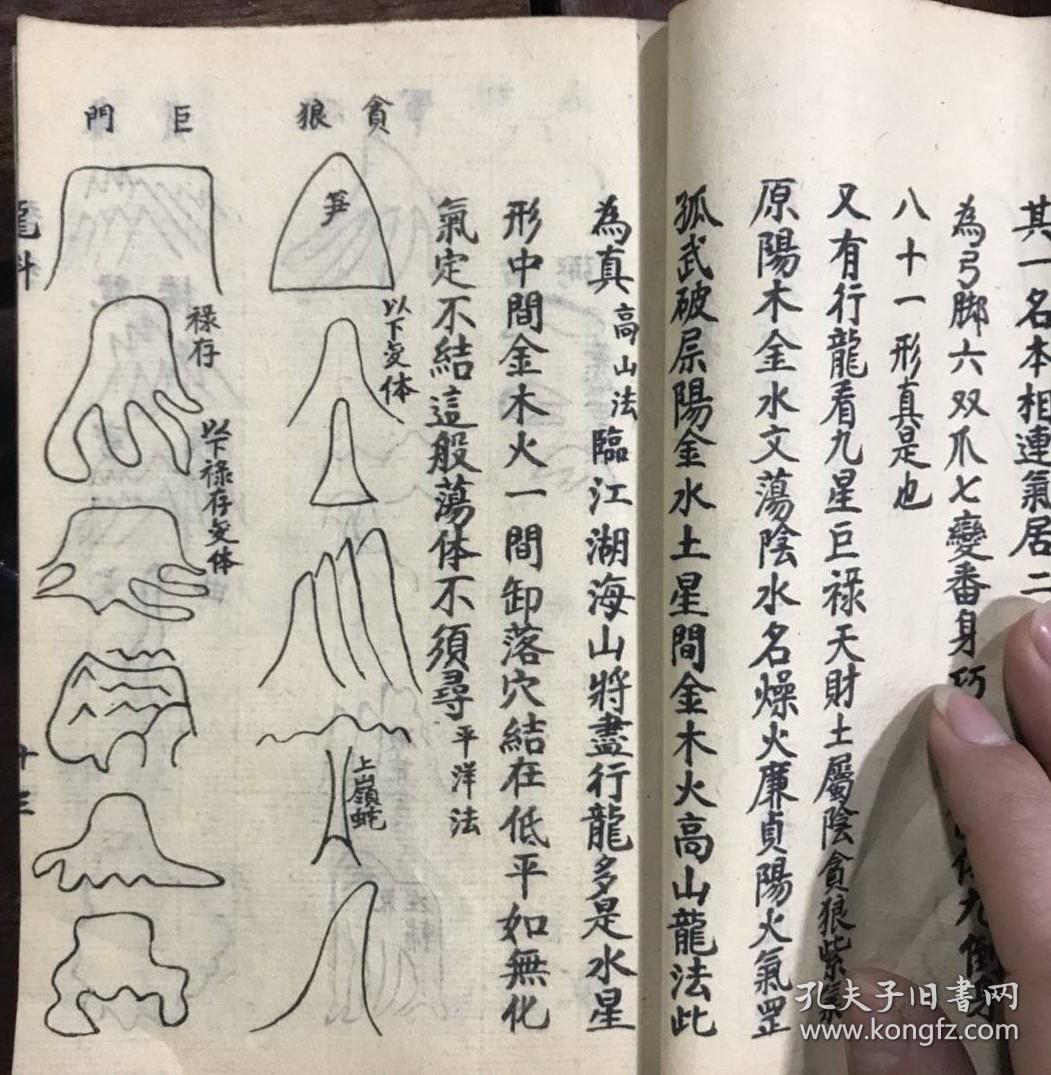 其一名本相連氣居二
為弓脚六双爪七變番身巧 九倒
八十一形真是也
又有行龍看九星巨祿天財土屬陰貪狼紫氣
原陽木金水文蕩陰水名燥火廉貞陽火氣罡
孤武破屎陽金水土星間金木火高山龍法此
為真 高山法 臨江湖海山將盡行龍多是水星
形中間金木火一間卸落穴結在低平如無化
氣定不結這般蕩体不須尋 平洋法
貪狼
笋
以下变体
上嶺蛇
巨門
祿存
以下祿存变体
十三
孔夫子旧书网
www.kongfz.com